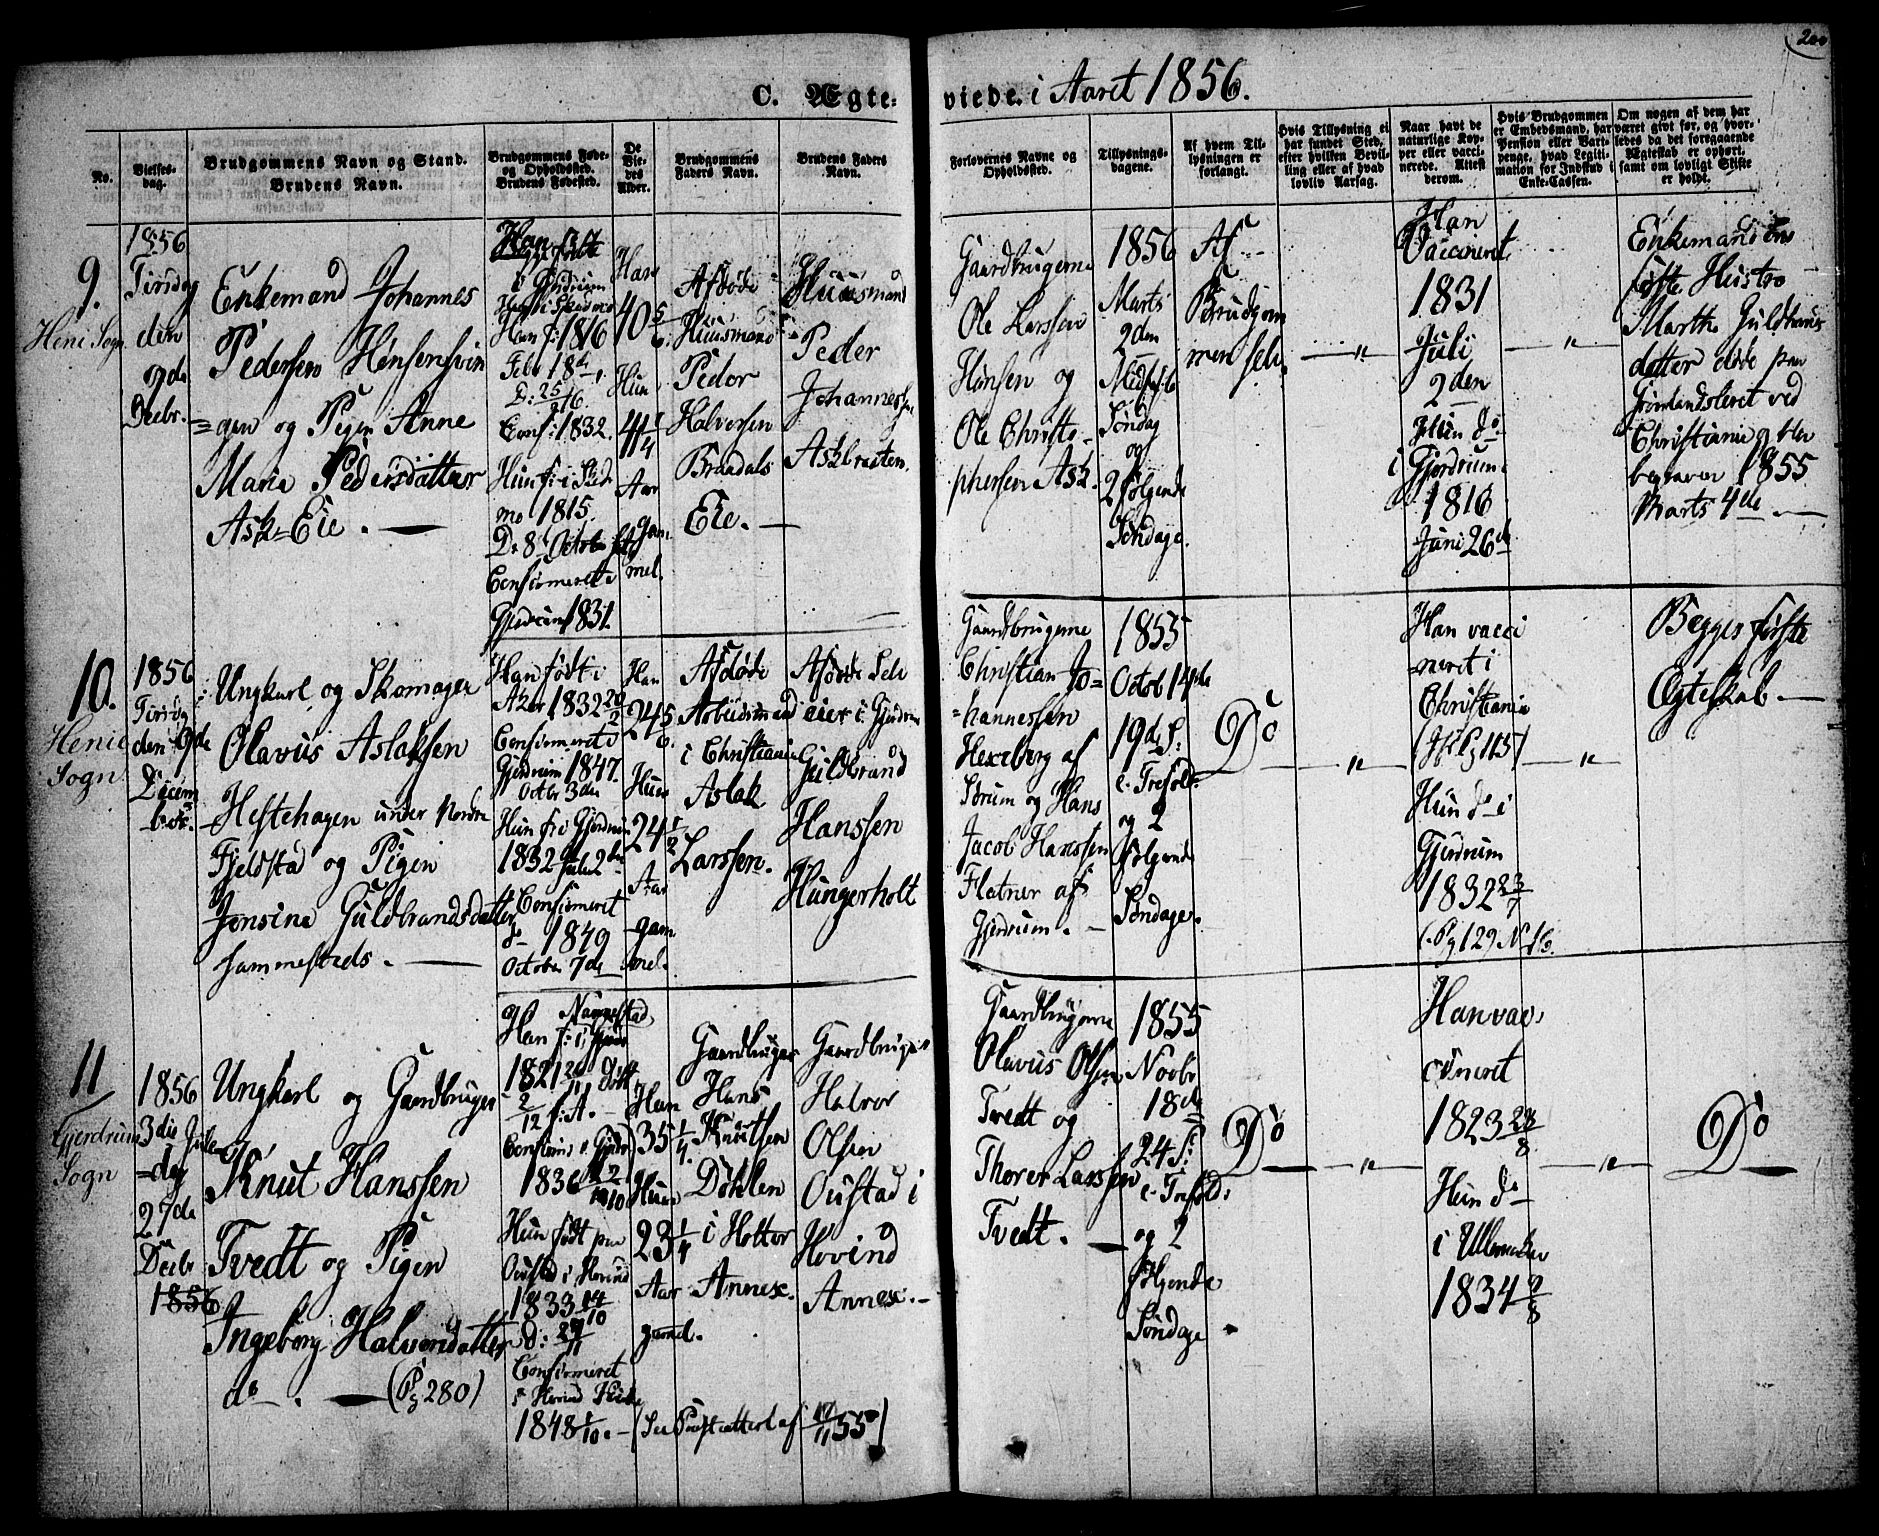 200
C. Ægteviede i Aaret 1856.
No.
Vielses-
dag.
Brudgommens Navn og Stand.
Brudens Navn.
Brudgommens Føde-
og Opholdssted.
Brudens Fødested.
De
Vie-
des
Alder.
Brudgommens
Faders Navn.
Brudens Faders
Navn.
Forlovernes Navne og
Opholdssted.
Tillysnings-
dagene.
Af hvem Til-
lysningen er
forlangt.
Hvis Tillysning ei
har fundet Sted,
efter hvilken Bevil-
ling eller af hvad
lovlig Aarsag.
Naar havt de
naturlige Kop-
per eller vacci-
nerede. Attest
derom.
Hvis Brudgommen
er Embedsmand, har
Pension eller Vart-
penge, hvad Legiti-
mation for Indskud i
Enke-Cassen.
Om nogen af dem har
været gift før, og hvor-
ledes da det foregaaende
Ægteskab er ophørt,
samt om lovligt Skifte
er holdt.
9.
Heni Sogn
1856
Tirsdag
den
Decbr.
Enkemand Johannes
Pedersen
og Pigen Anne
Maria Pedersdatter
Ask-Eie.
i Gjerdrum
Han f: 1816
Febr 18d
D: 25/2 16.
Conf: 1832.
Hun f: i Skeds
mo 1815.
D: 8d October
Confirmeret i
Gjerdrum 1831.
Han
40 5/6
Hun
41 1/4
Aar
gam-
mel.
Afdøde
Huusmand
Peder
Halvorsen
Braadals
Eie.
Huusmand
Peder
Johannessen
Askbraaten.
Gaardbrugerne
Ole Larssen
Hønsen og
Ole Christo-
phersen Ask.
1856
Marts
2den
Søndag
og
2 følgende
Søndage.
Af
Brudgom
men selv.
"
Han
Vaccineret
1831
Juli
2den
Hun do
i Gjerdrum
1816
Juni 26d
"
Enkemand
første Hustro
Marthe Guldbrands
datter døde paa
Grønlandsleret ved
Christiania og blev
begraven 1855
Marts 4de
10.
Henie
Sogn
1856
Tirsdg
den 9de
Decem
ber.
Ungkarl og Skomager
Olavus Aslaksen
Hestehagen under Nordre
Fjeldstad og Pigen
Jonsine Guldbrandsdatter
sammesteds.
Han født i
Aker 1832 20/2
Confirmeret i
Gjerdrum 1847.
Octbr 3die
Hun f: i Gjerdrum
1832 Juli 2den
Confirmeret
do 1849
October 7de
Han
24 5/6.
Hun
24 1/2
Aar
gam
mel.
Afdøde
Arbeidsmand
i Christiania
Aslak
Larssen.
Afdøde Selv
eier i Gjerdrum
Guldbrand
Hanssen
Hungerholt
Gaardbrugerne
Christian Jo-
hannessen
Hexeberg af
Sørum og Hans
Jacob Hanssen
Flatner af
Gjerdrum.
1855
Octob 14de
19de S:
e. Trefold:
og 2
følgende
Søndage.
Do
"
Han vacci
neret i
Christiania
Hun do i
Gjerdrum
1832 23/7
(Pg 129 N 16.
"
Begges første
Ægteskab.
11
Gjerdrum
Sogn
1856
3die Jule
dag
27de
Decbr
1856
Ungkarl og Gaardbruger
Knut Hanssen
Tvedt og Pigen
Ingeborg Halvorsdatter
do. (Pg 280)
Nannestad
Han f: i
1821 20/11 Døbt
2/12 f: A.
Confirm: i Gjerdr
1836 2/10
Hun født paa
Oustad i Hovind
1833 14/10
d: 29/11
Confirmeret
i Hovind Kirke
1848 1/10.
(See Præsteattest af 17/11 55)
Han
35 1/4
Hun
23 1/4
Aar
gamel.
Gaardbruger
Hans
Knutsen
Døhlen
i Holter
Annex.
Gaardbruger
Halvor
Olsen
Oustad i
Hovind
Annex.
Gaardbrugerne
Olavus Olsen
Tvedt og
Thorer Larssen
Tvedt.
1855
Novbr
18de
24 S:
e. Trefold:
og 2
følgende
Søndage
Do
"
Han vac
cineret
1823 28/8
Hun do
i Ullensaker
1834 9/8
"
Do